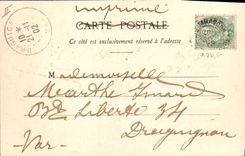 imprimé
CARTE POSTALE
Ce côté est exclusivement réservé à l'adresse
Mademoiselle
Marthe Isnard
Bd Liberté 34
Draguignan
Var